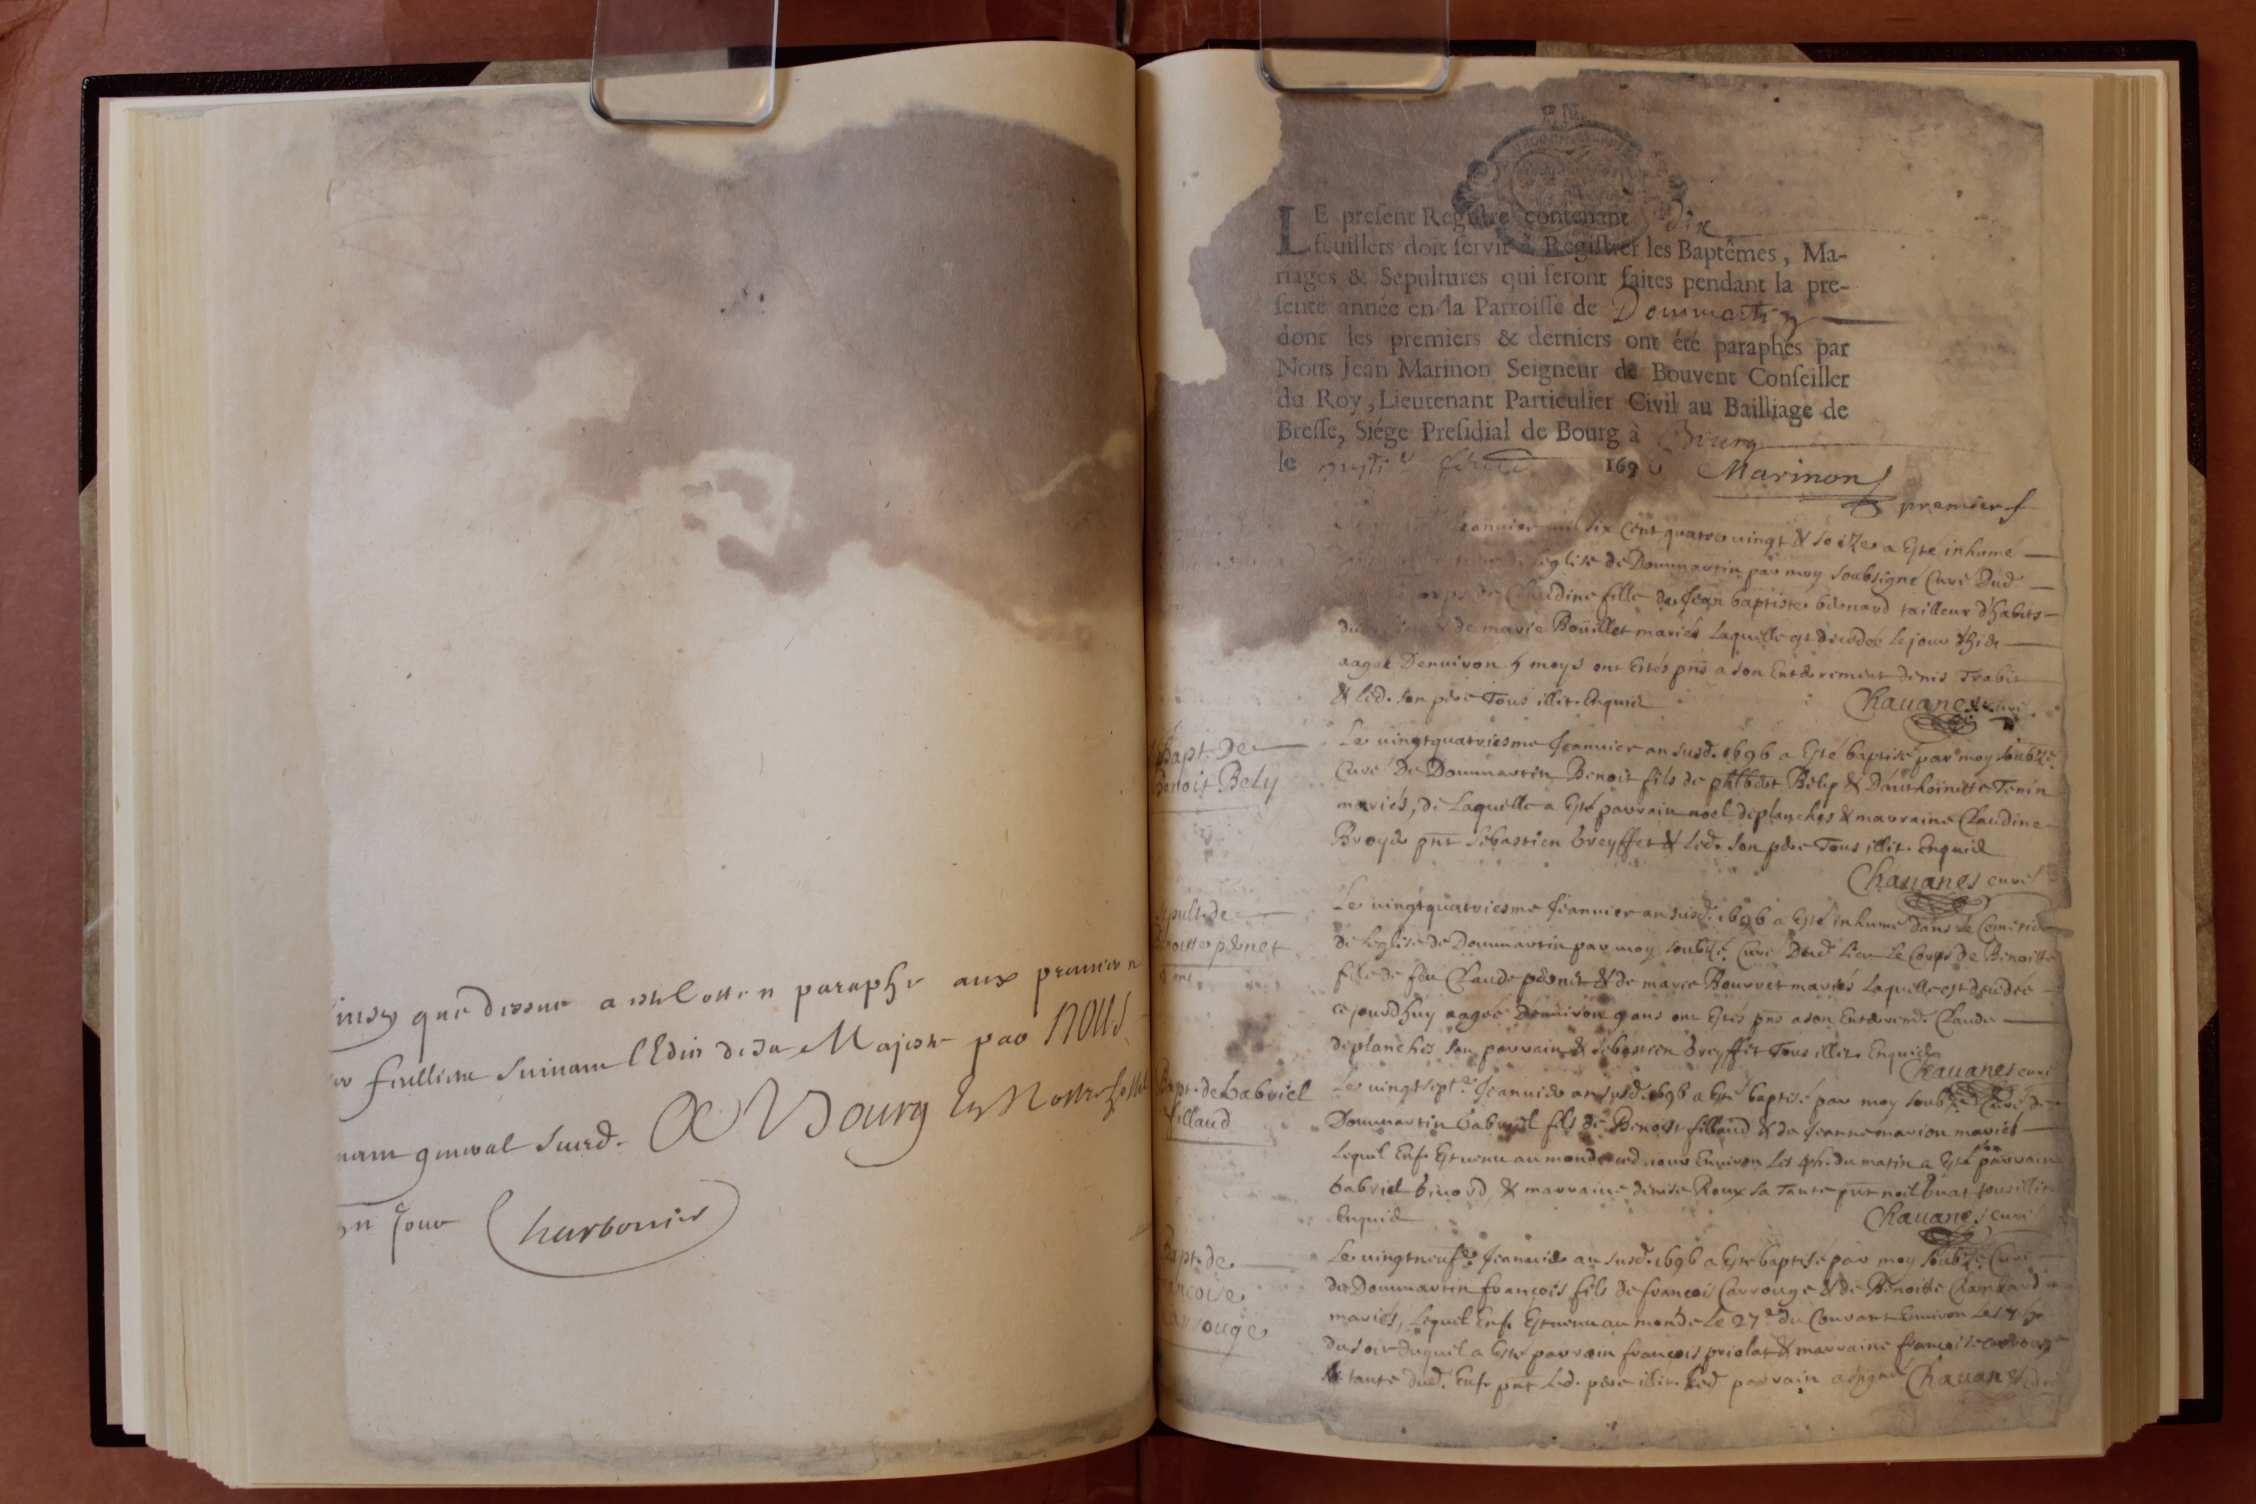 que dessus a esté cotté et paraphé aux premier
feuillets suivant l'Edit de sa Majesté par NOUS
general susd. A Bourg En Nostre hostel
jour Charbonier
LE present Registre contenant dix
feuillets doit servir à Registrer les Baptêmes, Ma-
riages & Sepultures qui seront faites pendant la pre-
sente année en la Parroisse de Dommartin
dont les premiers & derniers ont été paraphés par
Nous Jean Marinon Seigneur de Bouvent Conseiller
du Roy, Lieutenant Particulier Civil au Bailliage de
Bresse, Siége Presidial de Bourg à Bourg
le 169
Marinon
premier f
Jeannier mil six cent quatre vingt & seize a esté inhumé
eglise de Dommartin par moy soubsigné Curé Dud
corps de Claudine fille de Jean baptiste tailleur d'habits
& de marie Boüillet mariés laquelle est decedée le jour d'hier
aagee Denviron 5 moys ont estés pnts a son Enterrement denis Trabit
& led. son pere Tous illit. Enquis
Chauanes curé
Bapt. De
Benoit Bely
Le vingtquatriesme Jeannier an susd. 1696 a esté baptisé par moy soubzé
Curé De Dommartin Benoit fils de philbert Bely & D'anthoinette Tenin
mariés, de Laquelle a esté parrain noel deplanches & marraine Claudine
Broye pnt Sebastien breyffet & led. son pere Tous illit. Enquis
Chauanes curé
Sepult. de
Benoitte penet
9 ans
Le vingtquatriesme Jeannier an susd. 1696 a esté inhumé dans le Cemetiere
de Leglise de Dommartin par moy soubzé Curé Dud lieu Le Corps de Benoitte
fille de feu Claude penet & de marie Bourret mariés laquelle est decedée
ce jourdhuy aagée Denviron 9 ans ont estés pnts a son Enterremt. Claude
deplanches son parrain & sebastien breyffet Tous illit. Enquis
Chauanes curé
Bapt. de Gabriel
fillaud
Le vingtsept.e Jeannier an susd. 1696 a esté baptisé par moy soubzé Curé de
Dommartin Gabriel fils de Benoit fillaud & de Jeanne marion mariés
Lequel Enf. Est venu au monde ced. jour Environ les 4 h. du matin a esté son parrain
Gabriel & marraine denise Roux sa Tante pnt noel buat tous illit.
Enquis
Chauanes curé
Bapt. de
francois
Carrouge
Le vingtneuf.e Jeannier an susd. 1696 a esté baptisé par moy soubzé Curé
de Dommartin francois fils de francois Carrouge & de Benoitte Chambard
mariés, Lequel Enf. Est venu au monde le 27.e du Courant Environ les 7 h.
du soir duquel a esté parrain francois priolat & marraine francoise carrouge
sa tante dud. Enf. pnt Led. pere illit. Led parrain a signé Chauanes curé